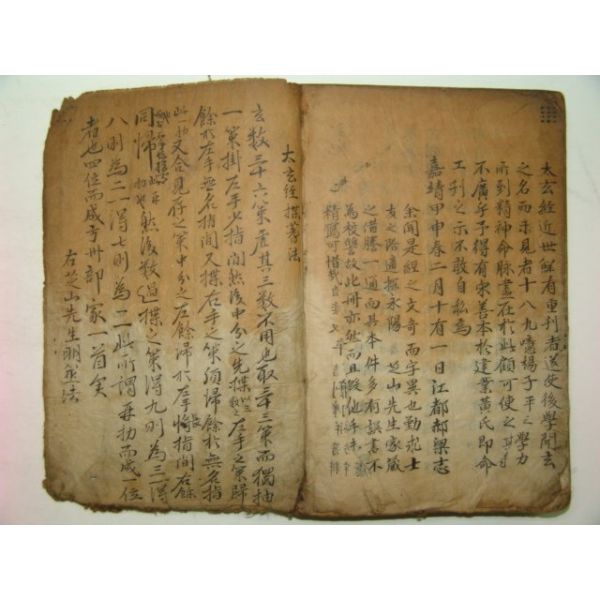 太玄經近世鮮有重刊者遂使後學聞玄
之名而未見者十八九噫揚子平之學力
所到精神命脉盡在於此顧可使之
不廣乎予得有宋善本於建業黃氏即命
工刊之示不敢自私焉
嘉靖甲申春二月十有一日江都郝梁志
余聞是經之文奇而字異也勤求士
友之際適探永陽 芝山先生家藏
之借謄一通而具本件多有誤書不
為校讐故此冊亦然而且
精寫可惜
太玄經揲蓍法
玄數三十六策虛其三數不用也取三十三策而獨抽
一策掛左手少指間然後中分之先揲左手之策歸
餘於左手無名指間又揲右手之策須歸餘於無名指
此一扐又合見存之策中分之左餘歸於左手將指間右餘
同歸 然後數過揲之策得九則為三得
八則為二得七則為一此所謂再扐而成一位
者也四位而成方州部家一首矣
右芝山先生明筮法